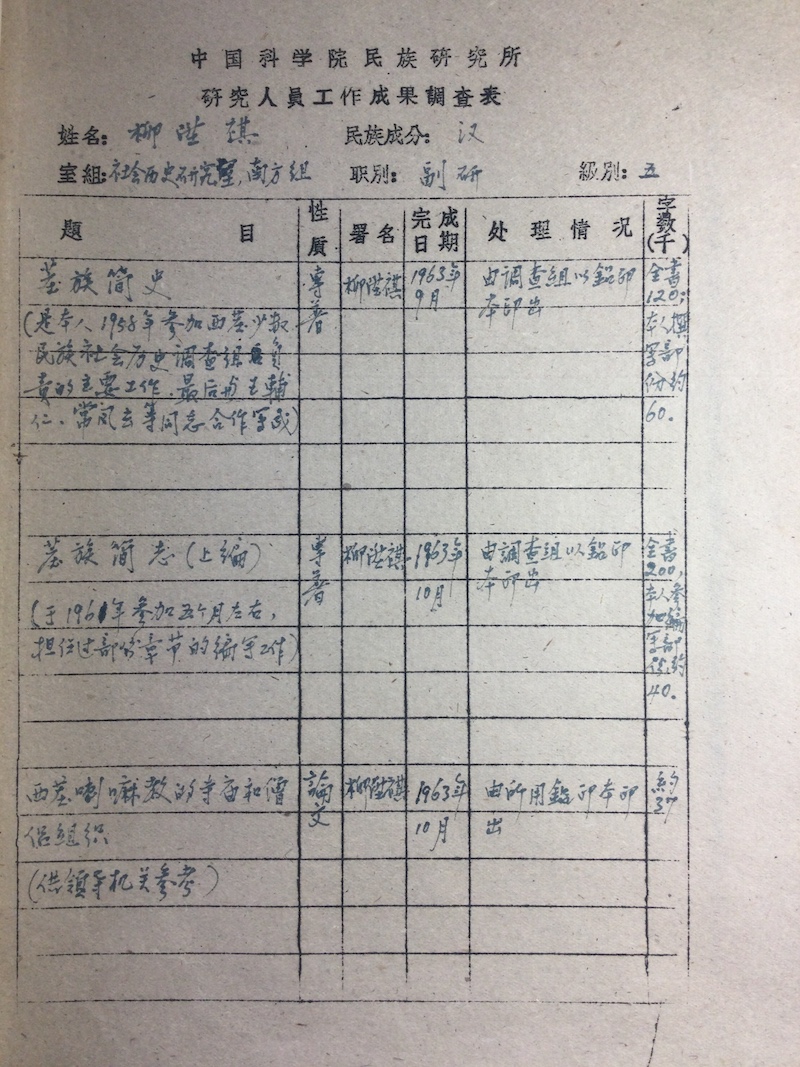 中国科学院民族研究所
研究人員工作成果調查表
姓名：柳陞祺 民族成分：汉
室組：社会历史研究室，南方組 职别：副研 級别：五
題目 性质 署名 完成日期 处理情况 字数(千)
茎族简史 専著 柳陞祺 1963年9月 由調查組以鉛印本印出 全書120；本人撰写部份約60。
(是本人1958年参加西茎少数
民族社会历史調查組后負
責的主要工作，最后与王輔
仁、常凤玄等同志合作写成)
茎族简志(上編) 専著 柳陞祺 1963年10月 由調查組以鉛印本印出 全書200，本人参加編写部份約40。
(于1961年参加五个月左右，
担任过部分章节的編写工作)
西茎喇嘛教的寺庙和僧 論文 柳陞祺 1963年10月 由所用鉛印本印出 約37
侣組织
(供領导机关参考)